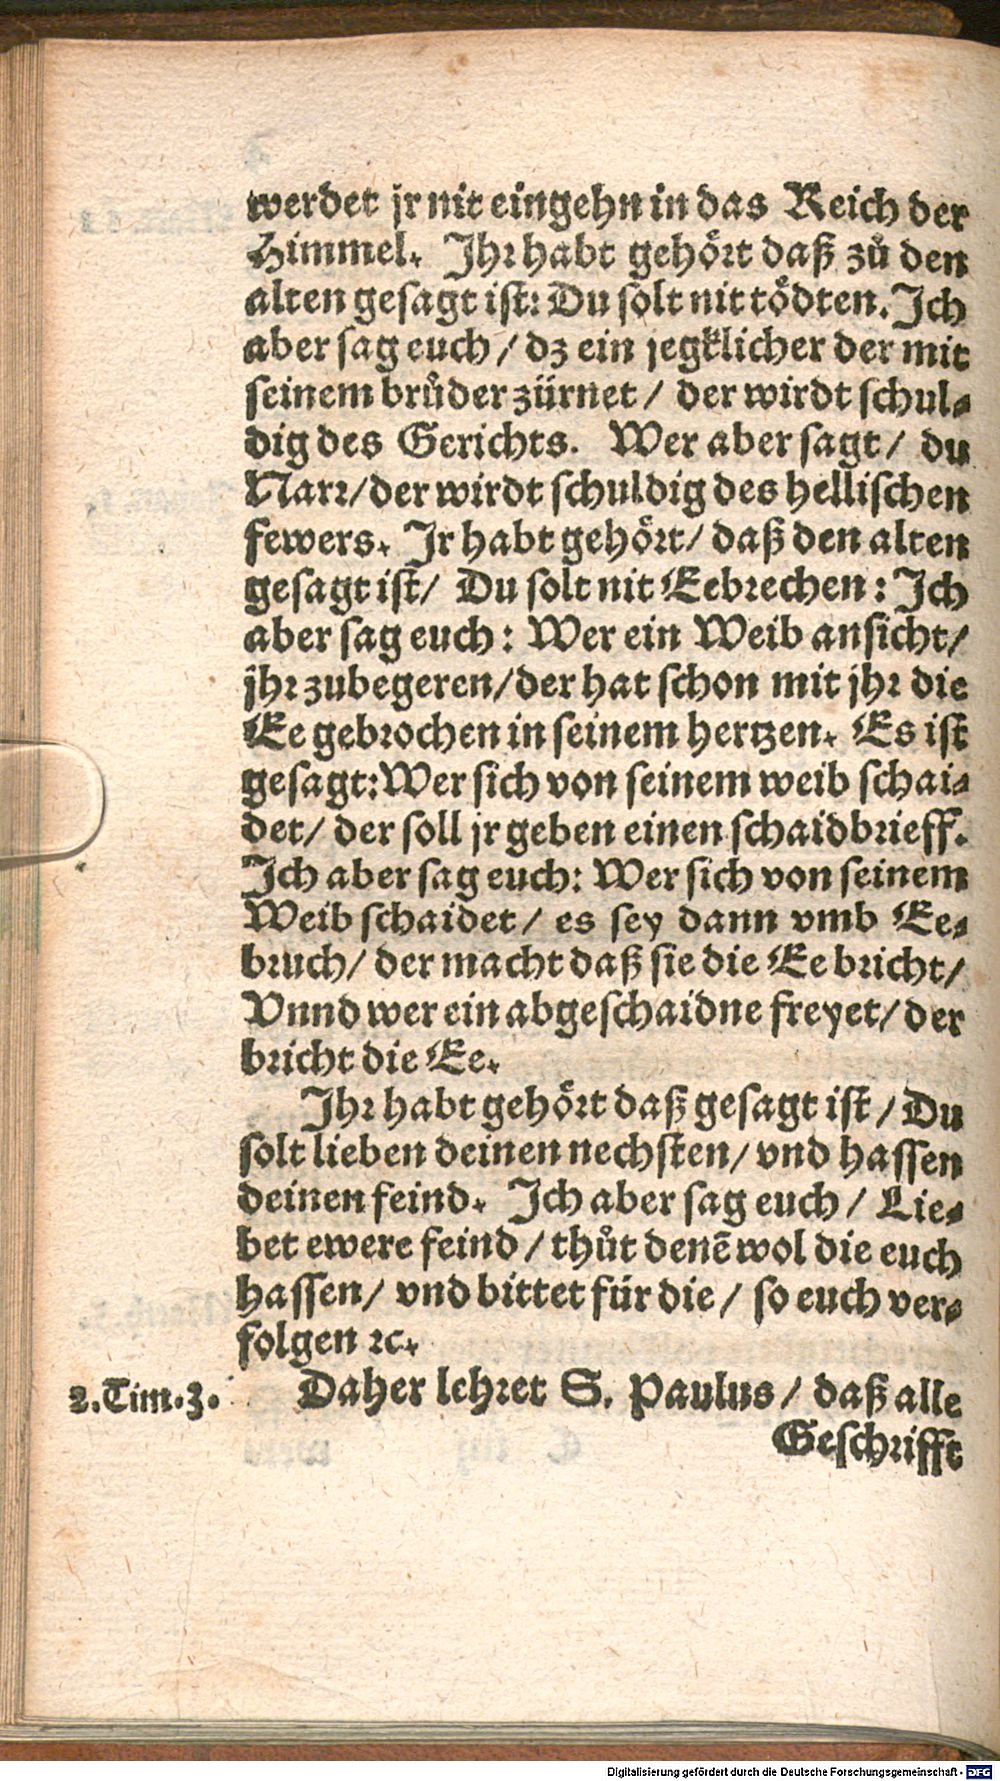 werdet jr nit eingehn in das Reich der
Himmel. Ihr habt gehört daß zů den
alten gesagt ist: Du solt nit tödten. Ich
aber sag euch / dz ein jegklicher der mit
seinem brůder zürnet / der wirdt schul-
dig des Gerichts. Wer aber sagt / du
Narr/der wirdt schuldig des hellischen
fewers. Ir habt gehört/ daß den alten
gesagt ist/ Du solt nit Eebrechen: Ich
aber sag euch: Wer ein Weib ansicht/
jhr zubegeren/der hat schon mit jhr die
Ee gebrochen in seinem hertzen. Es ist
gesagt: Wer sich von seinem weib schai-
det/ der soll jr geben einen schaidbrieff.
Ich aber sag euch: Wer sich von seinem
Weib schaidet/ es sey dann vmb Ee-
bruch/ der macht daß sie die Ee bricht/
Vnnd wer ein abgeschaidne freyet/ der
bricht die Ee.
Ihr habt gehört daß gesagt ist / Du
solt lieben deinen nechsten/ vnd hassen
deinen feind. Ich aber sag euch / Lie-
bet ewere feind / thůt denē wol die euch
hassen/ vnd bittet für die / so euch ver-
folgen ꝛc.
2.Tim.3. Daher lehret S. Paulus / daß alle
Geschrifft
Digitalisierung gefördert durch die Deutsche Forschungsgemeinschaft - DFG